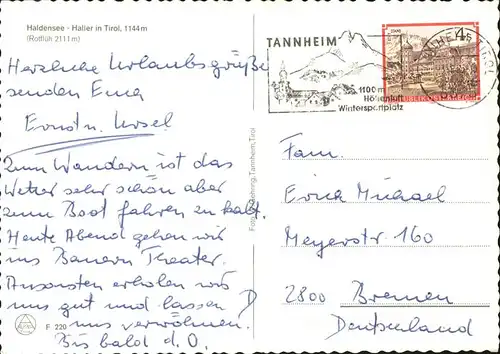 Haldensee - Haller in Tirol, 1144 m
(Rotflüh 2111 m)
Herzliche Urlaubsgrüße
senden Euch
Ernst u. Ursel
Zum Wandern ist das
Wetter sehr schön aber
zum Boot fahren zu kalt.
Heute Abend gehen wir
ins Bauern Theater.
Ansonsten erholen wir
uns gut und lassen
uns verwöhnen.
Bis bald d. O.
F 220
Tannheim, Tirol
TANNHEIM
1100 m
Höhenluft
Wintersportplatz
STAMS
4
REPUBLIK ÖSTERREICH
Fam.
Erich Michael
Meyerstr 160
2800 Bremen
Deutschland